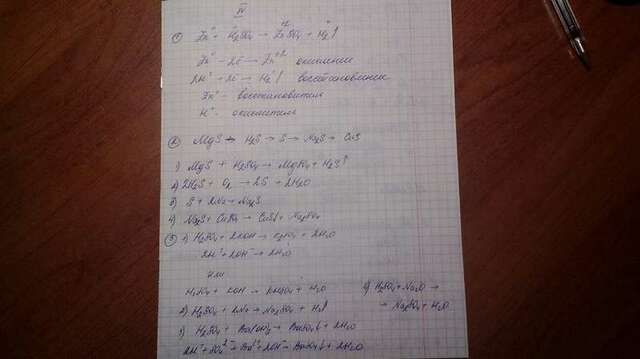 IV
① Zn⁰ + H₂SO₄ → ZnSO₄ + H₂↑
Zn⁰ - 2e → Zn⁺² окисление
2H⁺ + 2e → H₂⁰↑ восстановление
Zn⁰ - восстановитель
H⁺ - окислитель
② MgS → H₂S → S → Na₂S → CuS
1) MgS + H₂SO₄ → MgSO₄ + H₂S↑
2) 2H₂S + O₂ → 2S + 2H₂O
3) S + 2Na → Na₂S
4) Na₂S + CuSO₄ → CuS↓ + Na₂SO₄
③ 1) H₂SO₄ + 2KOH → K₂SO₄ + 2H₂O
2H⁺ + 2OH⁻ → 2H₂O
или
H₂SO₄ + KOH → KHSO₄ + H₂O
2) H₂SO₄ + 2Na → Na₂SO₄ + H₂↑
3) H₂SO₄ + Ba(OH)₂ → BaSO₄↓ + 2H₂O
2H⁺ + SO₄²⁻ + Ba²⁺ + 2OH⁻ → BaSO₄↓ + 2H₂O
4) H₂SO₄ + Na₂O →
→ Na₂SO₄ + H₂O